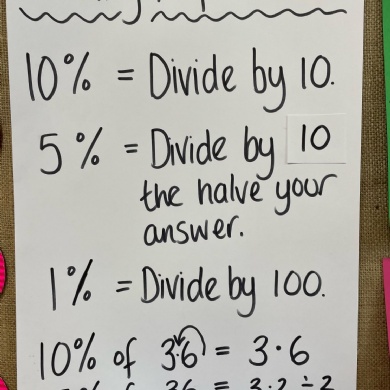 10% = Divide by 10.
5% = Divide by 10
the halve your
answer.
1% = Divide by 100.
10% of 36 = 3.6